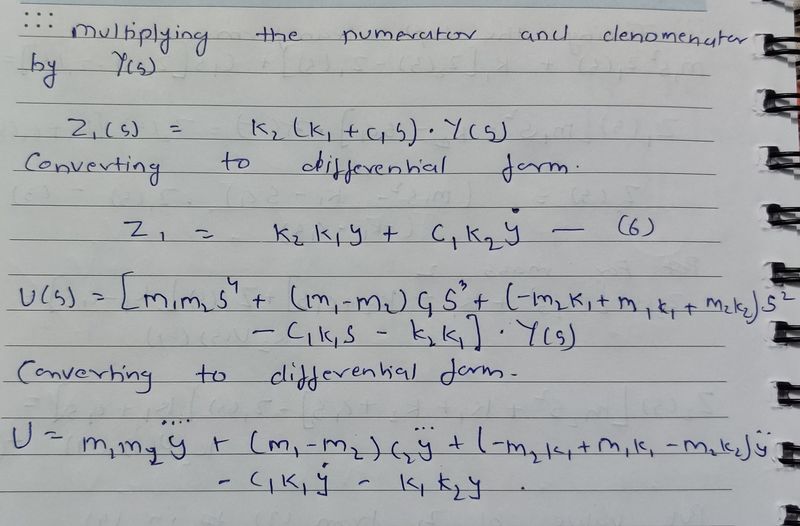 ∴ multiplying the numerator and denomenator
by Y(s)
Z₁(s) = K₂(K₁ + C₁S)·Y(s)
Converting to differential form.
Z₁ = K₂K₁y + C₁K₂ẏ — (6)
U(s) = [m₁m₂S⁴ + (m₁-m₂)C₁S³ + (-m₂K₁ + m₁K₁ + m₂K₂)S²
- C₁K₁S - K₂K₁]·Y(s)
Converting to differential form.
U = m₁m₂y⃜ + (m₁-m₂)C₂y⃛ + (-m₂K₁ + m₁K₁ - m₂K₂)ÿ
- C₁K₁ẏ - K₁K₂y .